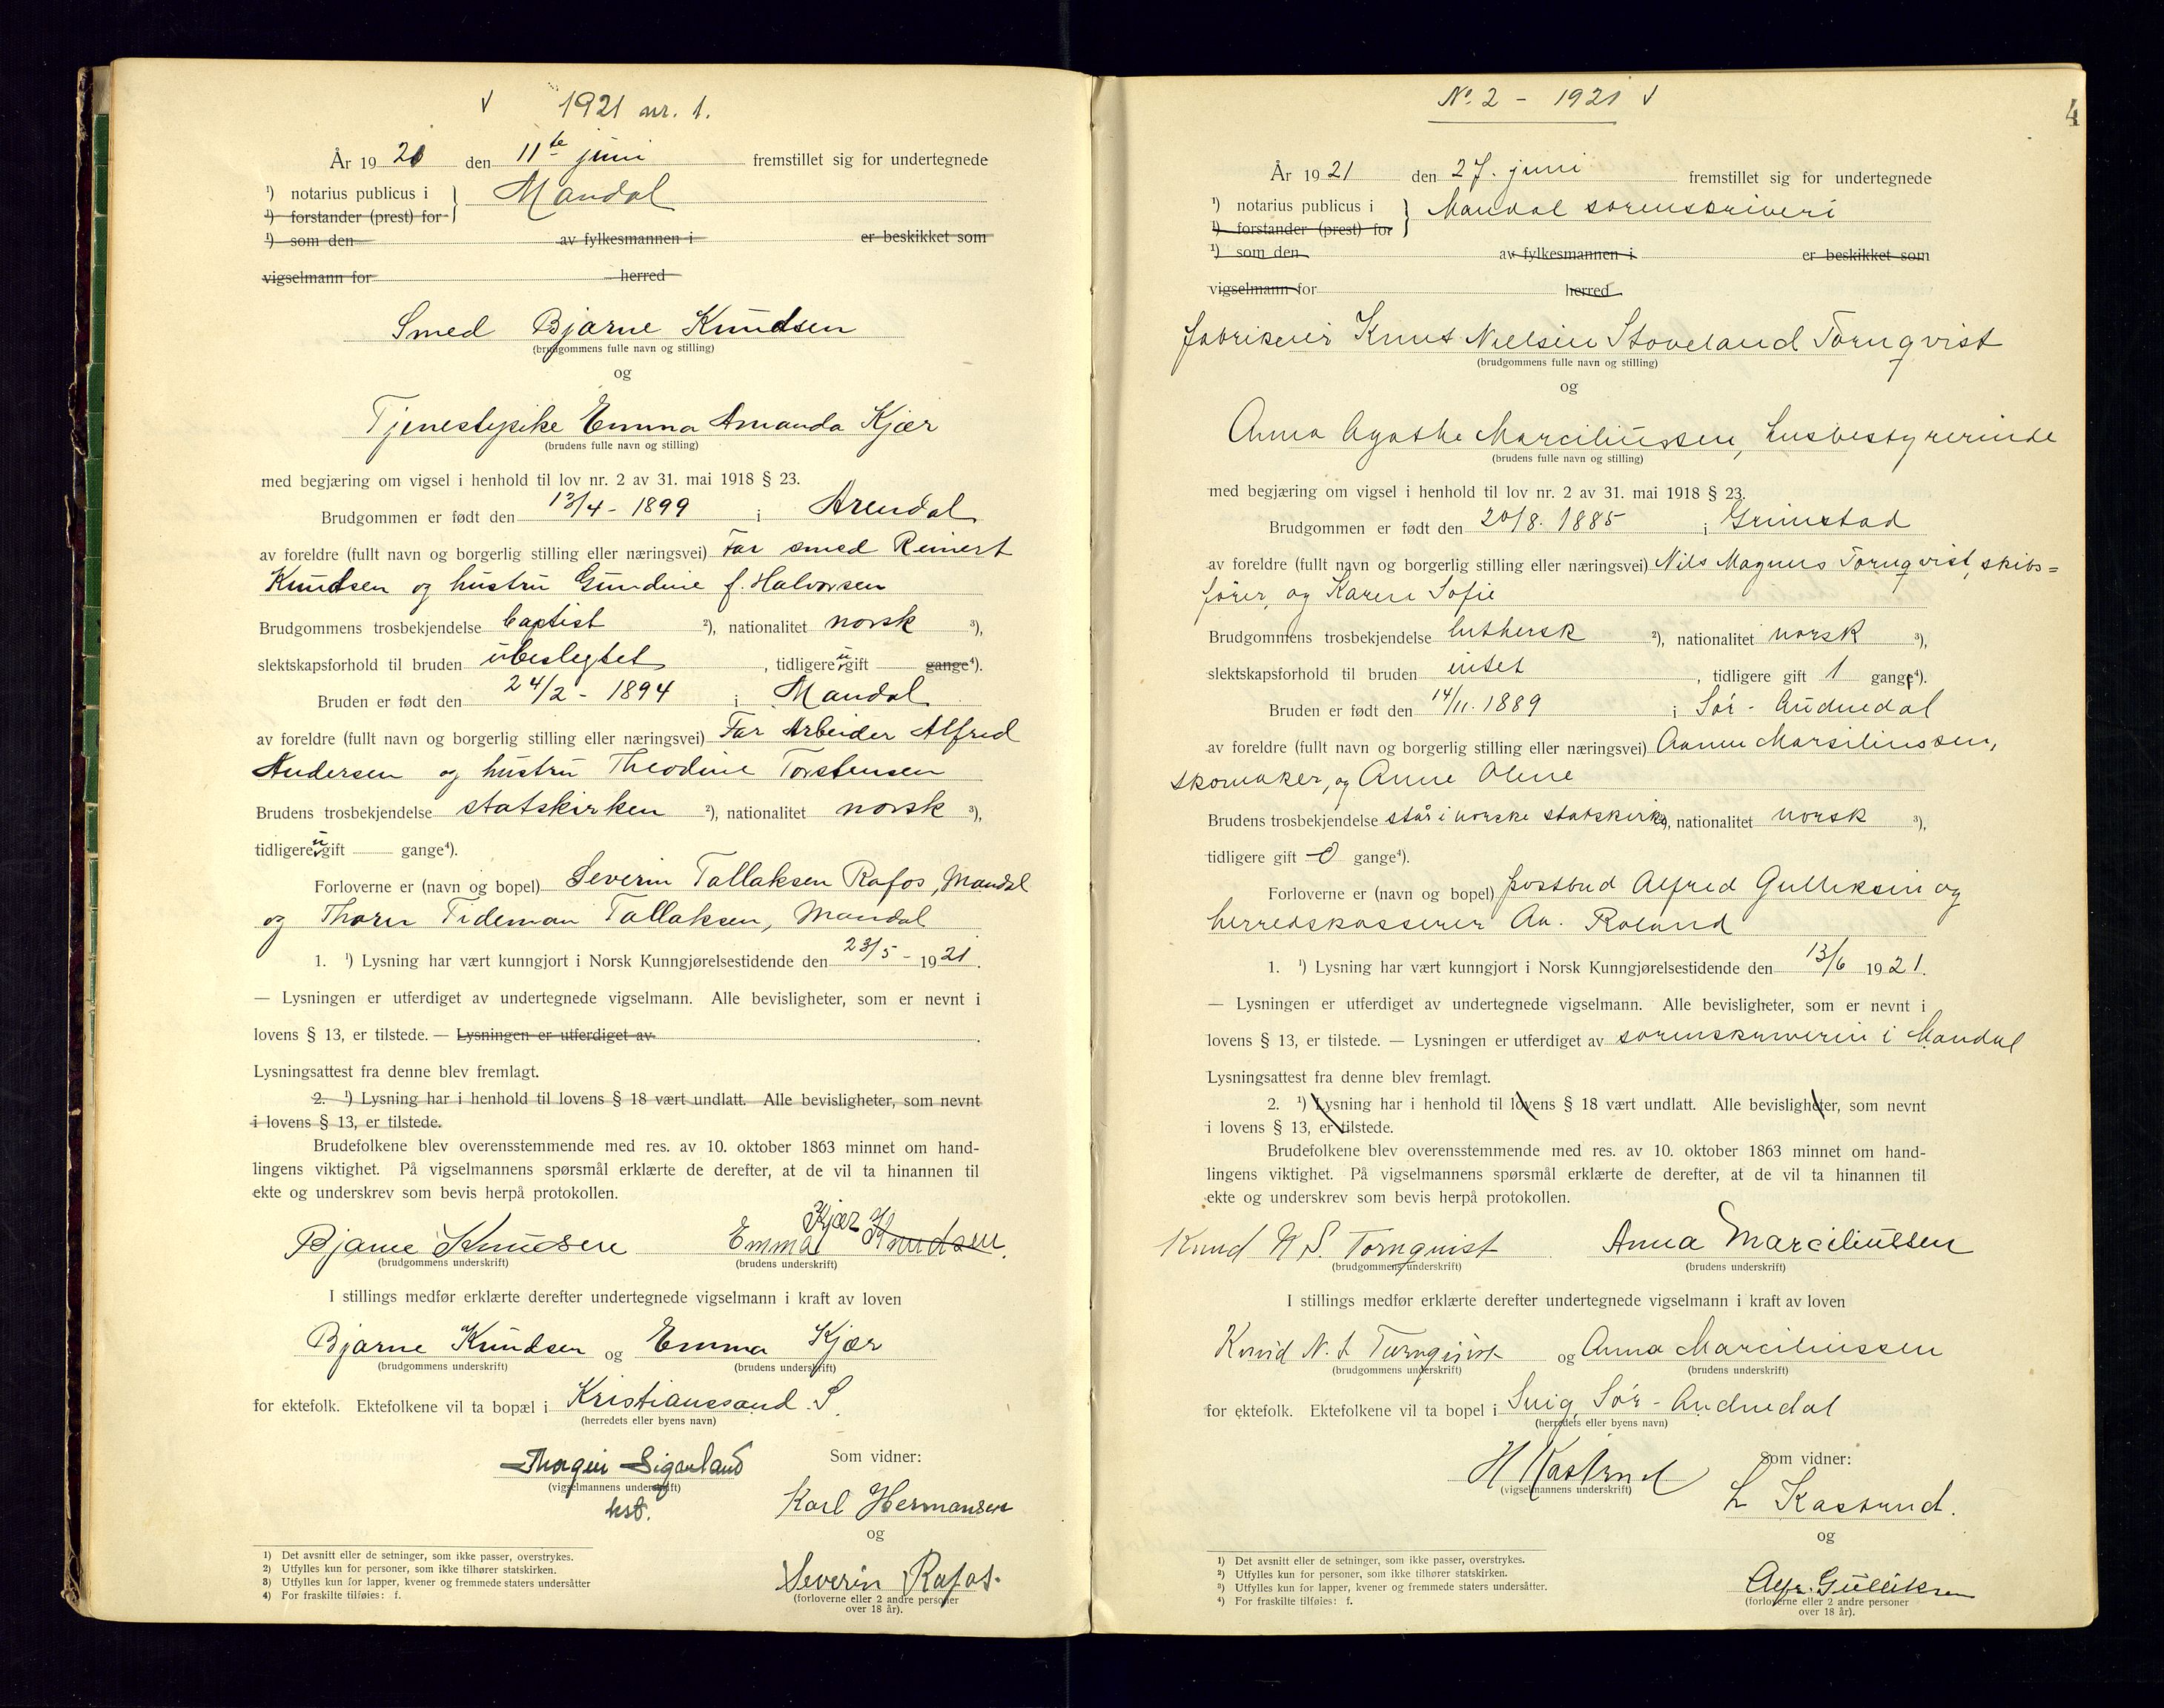 1921 nr. 1.
År 1921 den 11te juni fremstillet sig for undertegnede
¹) notarius publicus i } Mandal
¹) forstander (prest) for
¹) som den av fylkesmannen i er beskikket som
vigselmann for herred
Smed Bjarne Knudsen
(brudgommens fulle navn og stilling)
og
Tjenestepike Emma Amanda Kjær
(brudens fulle navn og stilling)
med begjæring om vigsel i henhold til lov nr. 2 av 31. mai 1918 § 23.
Brudgommen er født den 13/4 - 1899 i Arendal
av foreldre (fullt navn og borgerlig stilling eller næringsvei) Far smed Reinert
Knudsen og hustru Gundine f. Halvorsen
Brudgommens trosbekjendelse baptist ²), nationalitet norsk ³),
slektskapsforhold til bruden ubeslegtet, tidligere ugift gange⁴).
Bruden er født den 24/2 - 1894 i Mandal
av foreldre (fullt navn og borgerlig stilling eller næringsvei) Far Arbeider Alfred
Andersen og hustru Theodine Torstensen
Brudens trosbekjendelse statskirken ²), nationalitet norsk ³),
tidligere ugift gange⁴).
Forloverne er (navn og bopel) Severin Tallaksen Rafos, Mandal
og Thorn Tideman Tallaksen, Mandal
1. ¹) Lysning har vært kunngjort i Norsk Kunngjørelsestidende den 23/5 - 1921.
— Lysningen er utferdiget av undertegnede vigselmann. Alle bevisligheter, som er nevnt i
lovens § 13, er tilstede. — Lysningen er utferdiget av .
Lysningsattest fra denne blev fremlagt.
2. ¹) Lysning har i henhold til lovens § 18 vært undlatt. Alle bevisligheter, som nevnt
i lovens § 13, er tilstede.
Brudefolkene blev overensstemmende med res. av 10. oktober 1863 minnet om hand-
lingens viktighet. På vigselmannens spørsmål erklærte de derefter, at de vil ta hinannen til
ekte og underskrev som bevis herpå protokollen.
Bjarne Knudsen Emma Kjær Knudsen.
(brudgommens underskrift) (brudens underskrift)
I stillings medfør erklærte derefter undertegnede vigselmann i kraft av loven
Bjarne Knudsen og Emma Kjær
(brudgommens underskrift) (brudens underskrift)
for ektefolk. Ektefolkene vil ta bopæl i Kristianssand S.
(herredets eller byens navn)
Sigarland
(vigselmannens underskrift)
kst.
Som vidner:
Karl Hermansen
og
Severin Rafos.
(forloverne eller 2 andre personer
over 18 år).
1) Det avsnitt eller de setninger, som ikke passer, overstrykes.
2) Utfylles kun for personer, som ikke tilhører statskirken.
3) Utfylles kun for lapper, kvener og fremmede staters undersåtter
4) For fraskilte tilføies: f.
No. 2 - 1921
4
År 1921 den 27. juni fremstillet sig for undertegnede
¹) notarius publicus i } Mandal sorenskriveri
¹) forstander (prest) for
¹) som den av fylkesmannen i er beskikket som
vigselmann for herred
fabrikeier Knut Nielsen Stoveland Tornqvist
(brudgommens fulle navn og stilling)
og
Anna Agathe Marciliussen, husbestyrerinde
(brudens fulle navn og stilling)
med begjæring om vigsel i henhold til lov nr. 2 av 31. mai 1918 § 23.
Brudgommen er født den 20/8. 1885 i Grimstad
av foreldre (fullt navn og borgerlig stilling eller næringsvei) Nils Magnus Tornqvist, skibs=
fører, og Karen Sofie
Brudgommens trosbekjendelse luthersk ²), nationalitet norsk ³),
slektskapsforhold til bruden intet, tidligere gift 1 gang f⁴).
Bruden er født den 14/11. 1889 i Sør-Audnedal
av foreldre (fullt navn og borgerlig stilling eller næringsvei) Aanen Marsiliussen,
skomaker, og Anne Oline
Brudens trosbekjendelse står i norske statskirke, nationalitet norsk ³),
tidligere gift 0 gange⁴).
Forloverne er (navn og bopel) postbud Alfred Gulliksen og
herredskasserer Aa. Roland
1. ¹) Lysning har vært kunngjort i Norsk Kunngjørelsestidende den 13/6 1921.
— Lysningen er utferdiget av undertegnede vigselmann. Alle bevisligheter, som er nevnt i
lovens § 13, er tilstede. — Lysningen er utferdiget av sorenskriveren i Mandal
Lysningsattest fra denne blev fremlagt.
2. ¹) Lysning har i henhold til lovens § 18 vært undlatt. Alle bevisligheter, som nevnt
i lovens § 13, er tilstede.
Brudefolkene blev overensstemmende med res. av 10. oktober 1863 minnet om hand-
lingens viktighet. På vigselmannens spørsmål erklærte de derefter, at de vil ta hinannen til
ekte og underskrev som bevis herpå protokollen.
Knud N S. Tornquist Anna Marciliussen
(brudgommens underskrift) (brudens underskrift)
I stillings medfør erklærte derefter undertegnede vigselmann i kraft av loven
Knud N. S. Turnquist og Anna Marciliussen
(brudgommens underskrift) (brudens underskrift)
for ektefolk. Ektefolkene vil ta bopel i Snig, Sør-Audnedal
(herredets eller byens navn)
H Kastrud
(vigselmannens underskrift)
Som vidner:
L Kastrud.
og
Alfr. Gulliksen
(forloverne eller 2 andre personer
over 18 år).
¹) Det avsnitt eller de setninger, som ikke passer, overstrykes.
²) Utfylles kun for personer, som ikke tilhører statskirken.
³) Utfylles kun for lapper, kvener og fremmede staters undersåtter.
⁴) For fraskilte tilføies: f.